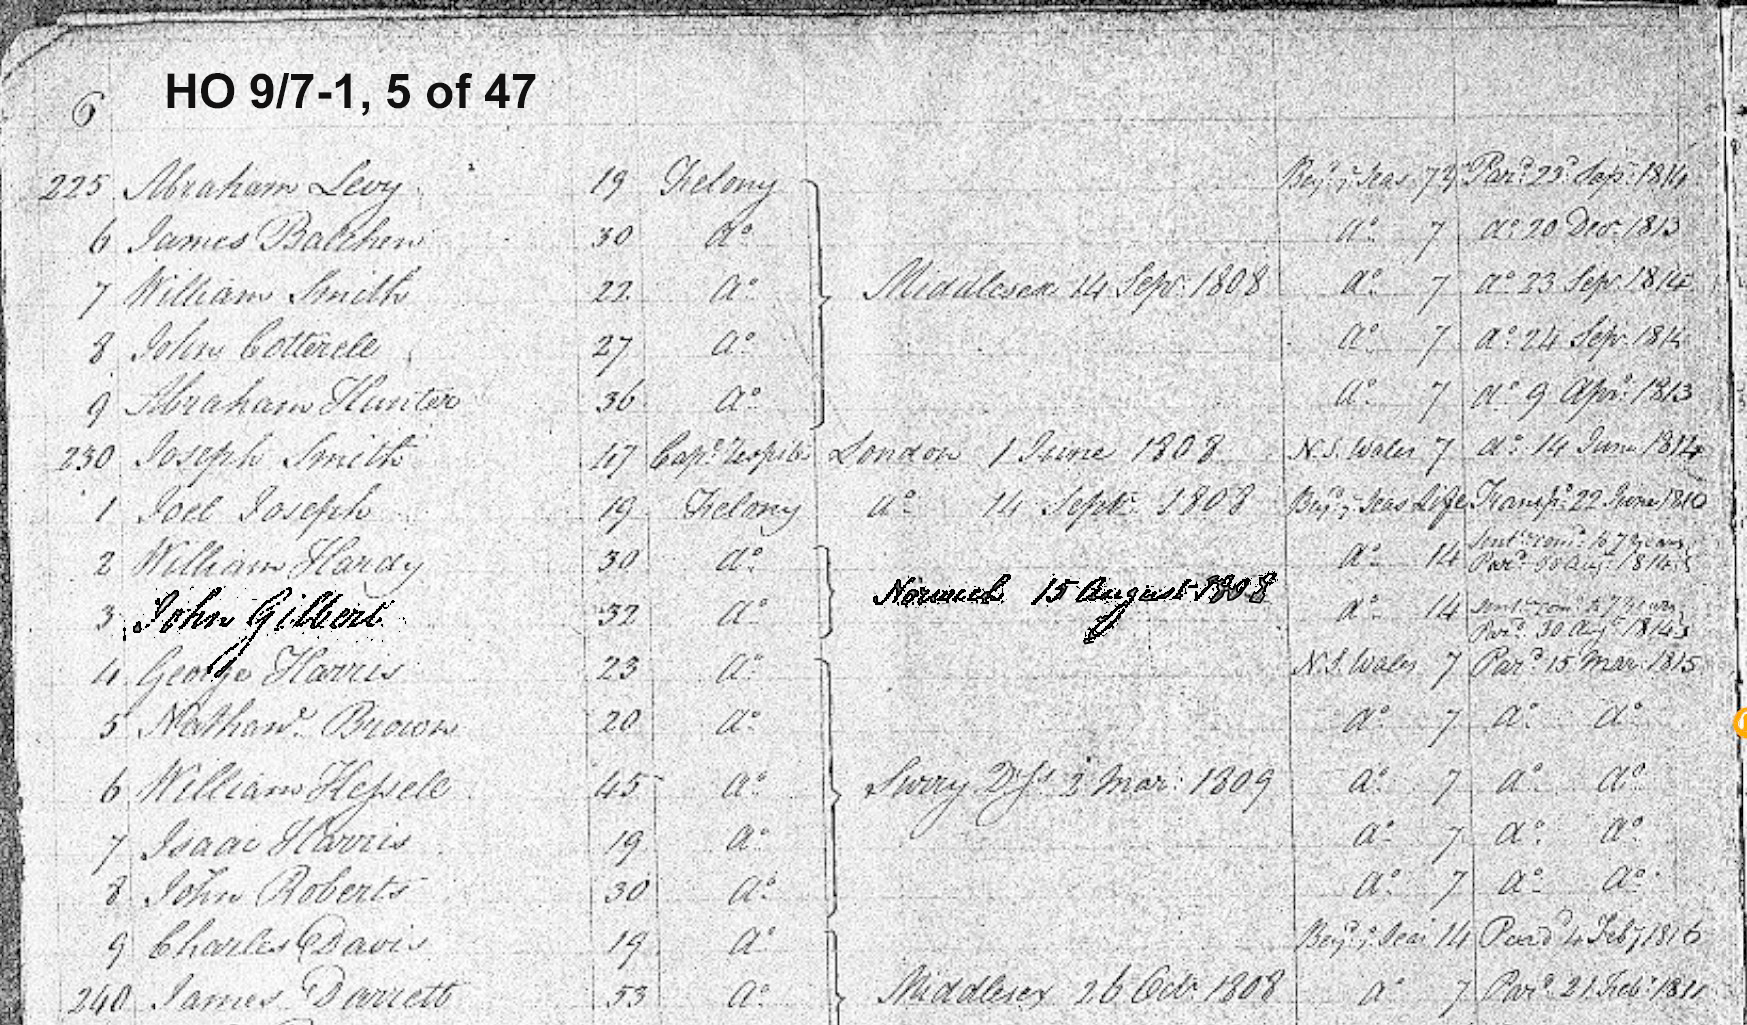 HO 9/7-1, 5 of 47
6
225 Abraham Levy 19 Felony Bey.d ye Seas 7 Par.d 23.d Sep.r 1814
6 James Batchen 30 d.o d.o 7 d.o 20 Dec.r 1813
7 William Smith 22 d.o Middlesex 14 Sep.r 1808 d.o 7 d.o 23 Sep.r 1814
8 John Cotterell 27 d.o d.o 7 d.o 24 Sep.r 1814
9 Abraham Hunter 36 d.o d.o 7 d.o 9 Apr. 1813
230 Joseph Smith 47 Cap.l London 1 June 1808 N.S. Wales 7 d.o 14 June 1814
1 Joel Joseph 19 Felony d.o 14 Sept.r 1808 Bey.d ye Seas Life Transp.d 22 June 1810
2 William Hardy 30 d.o d.o 14 Sent.ce com.d to 7 years, Par.d 30 Aug.t 1814
3 John Gilbert 32 d.o Norwich 15 August 1808 d.o 14 Sent.ce com.d to 7 years, Par.d 30 Aug.t 1814
4 George Harris 23 d.o N.S. Wales 7 Par.d 15 Mar. 1815
5 Nathan.l Brown 20 d.o d.o 7 d.o d.o
6 William Hessell 45 d.o Surry 2 Mar. 1809 d.o 7 d.o d.o
7 Isaac Harris 19 d.o d.o 7 d.o d.o
8 John Roberts 30 d.o d.o 7 d.o d.o
9 Charles Davis 19 d.o Bey.d ye Seas 14 Pard.d 4 Feb.y 1816
240 James Darrett 53 d.o Middlesex 26 Oct.r 1808 d.o 7 Par.d 21 Feb. 1811